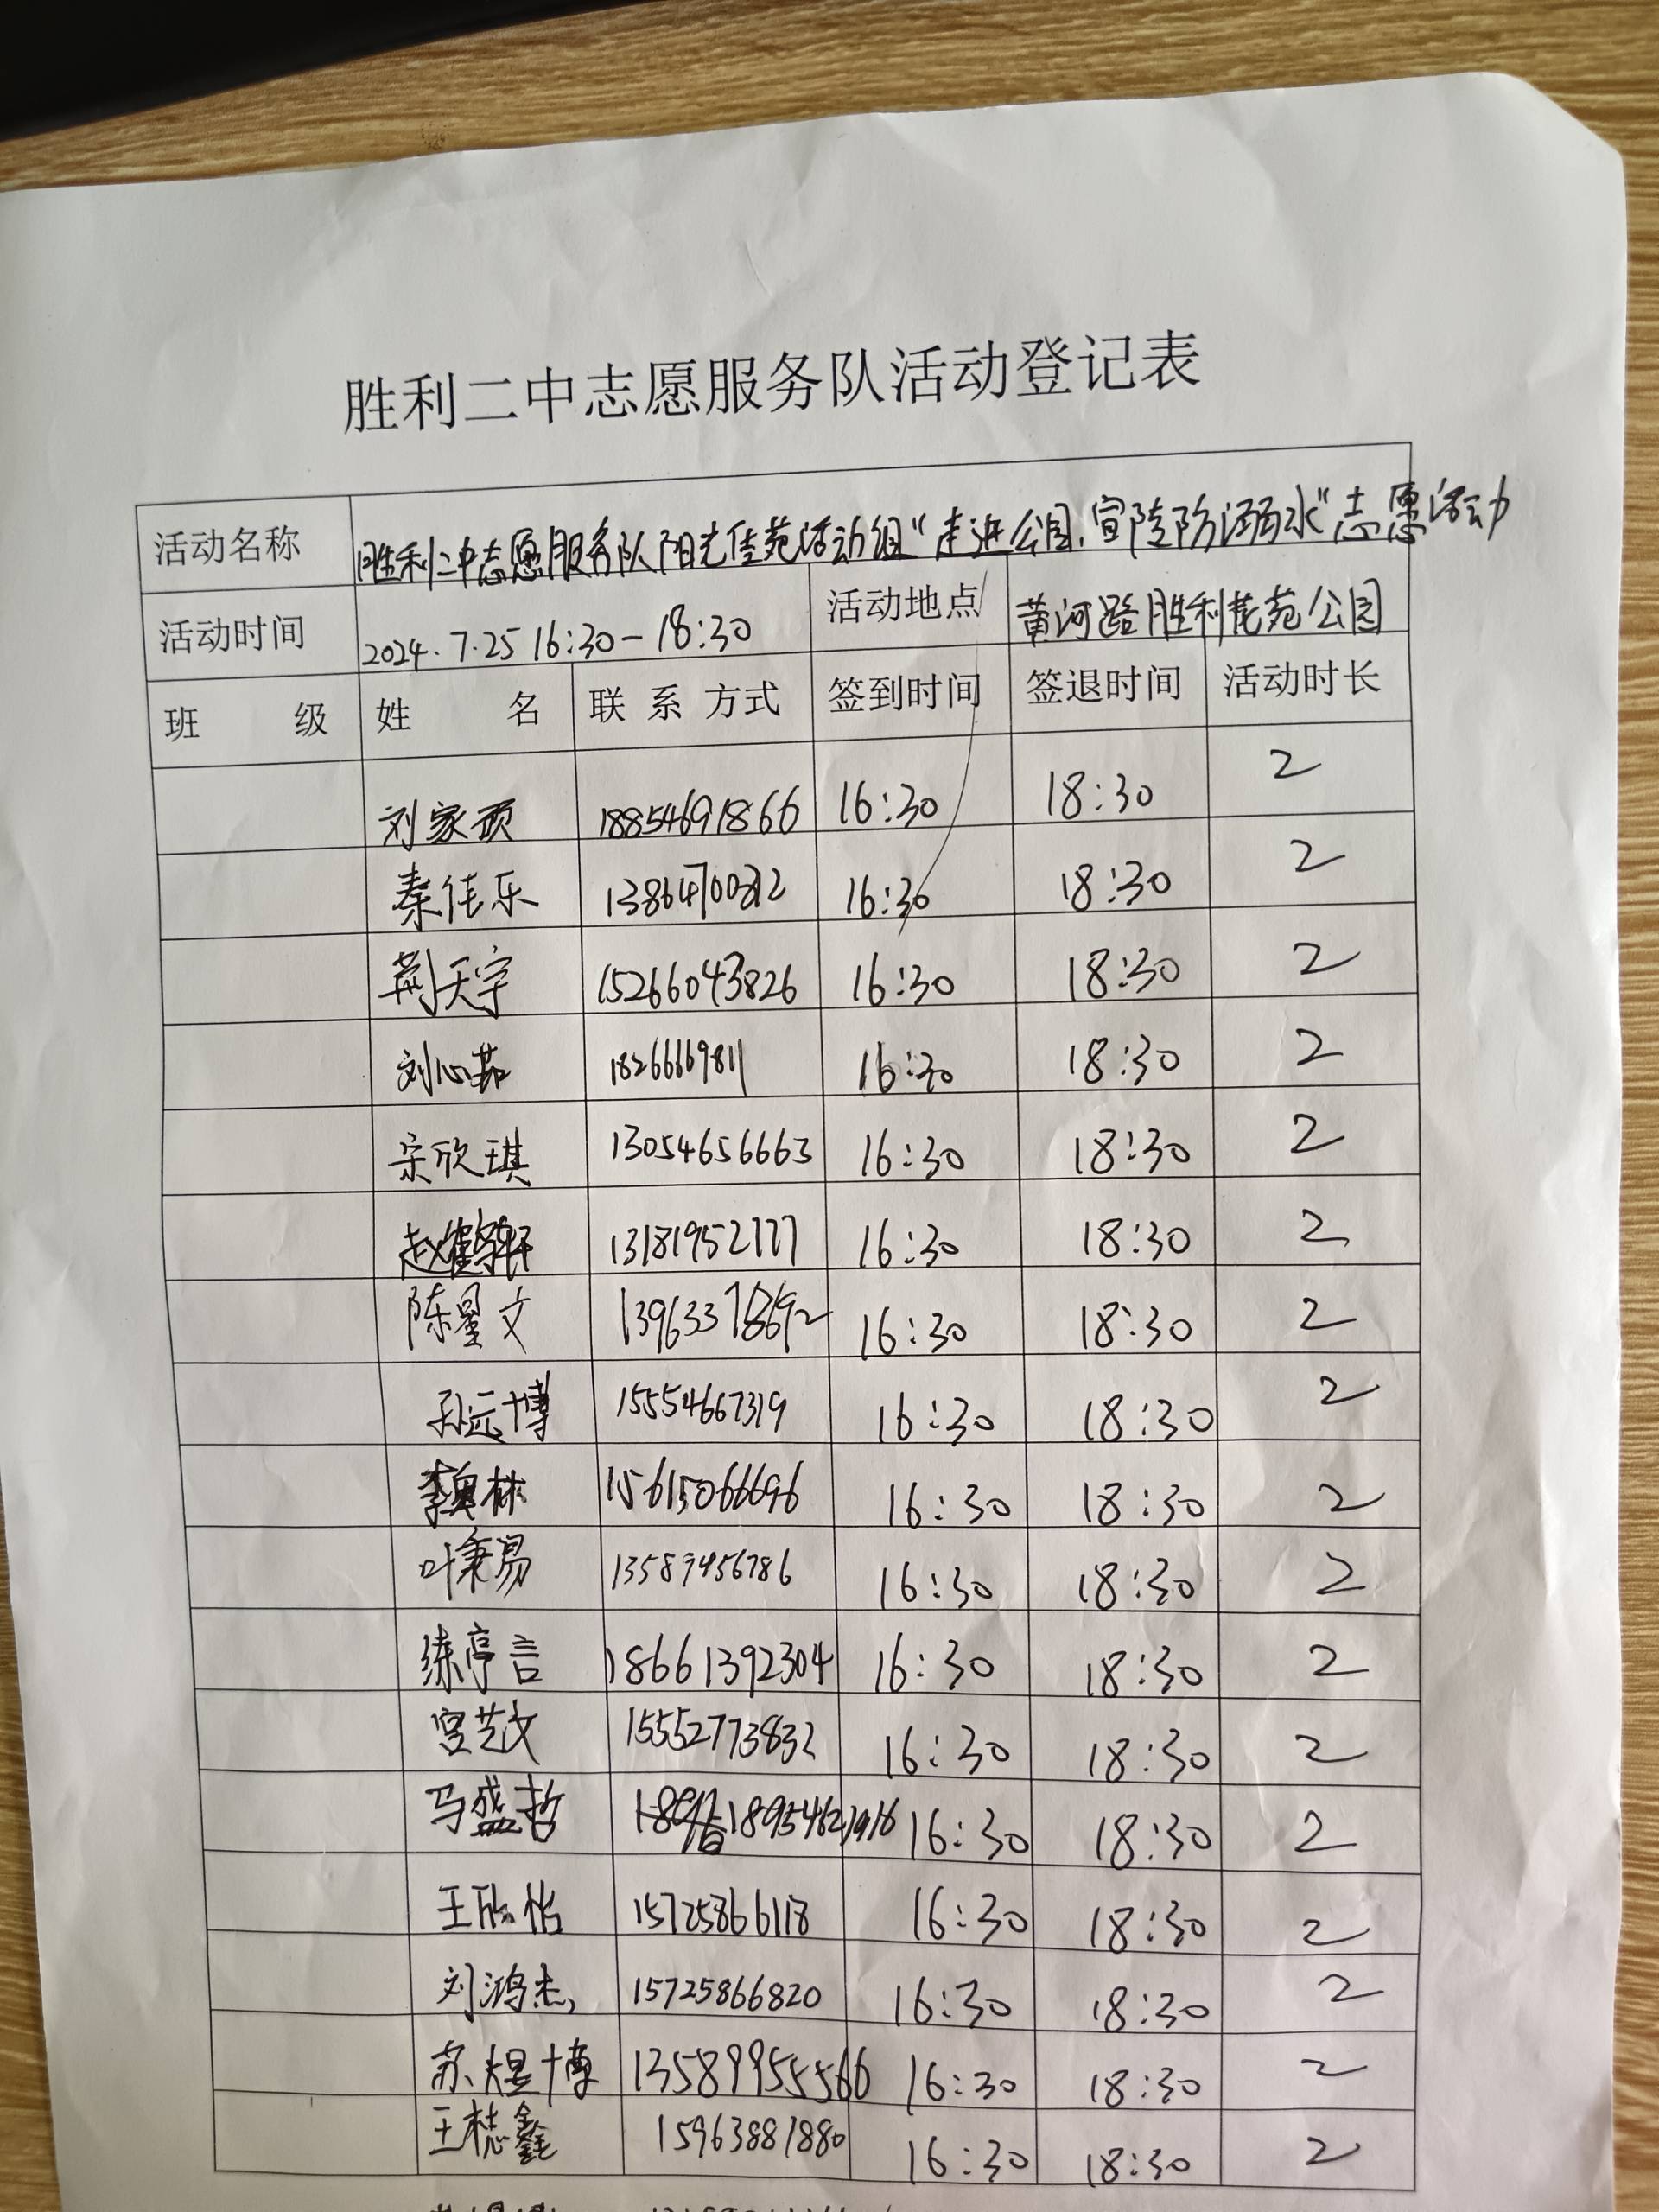 胜利二中志愿服务队活动登记表
活动名称 胜利二中志愿服务队阳光佳苑活动组“走进公园,宣陵防溺水”志愿活动
活动时间 2024.7.25 16:30-18:30 活动地点 黄河路胜利花苑公园
班 级 姓 名 联系方式 签到时间 签退时间 活动时长
刘家硕 18854691866 16:30 18:30 2
秦佳乐 16:30 18:30 2
荆天宇 15266043826 16:30 18:30 2
刘心茹 18266669811 16:30 18:30 2
宋欣琪 13054656663 16:30 18:30 2
赵鹤轩 13181952777 16:30 18:30 2
陈星文 13963378692 16:30 18:30 2
孙远博 15554667319 16:30 18:30 2
李奥林 15615066696 16:30 18:30 2
叶秉易 13589456786 16:30 18:30 2
练亭言 18661392304 16:30 18:30 2
宫艺文 15552773832 16:30 18:30 2
马盛哲 16:30 18:30 2
王欣怡 15725866118 16:30 18:30 2
刘鸿杰 15725866820 16:30 18:30 2
苏煜博 13589955566 16:30 18:30 2
王梽鑫 15963881880 16:30 18:30 2